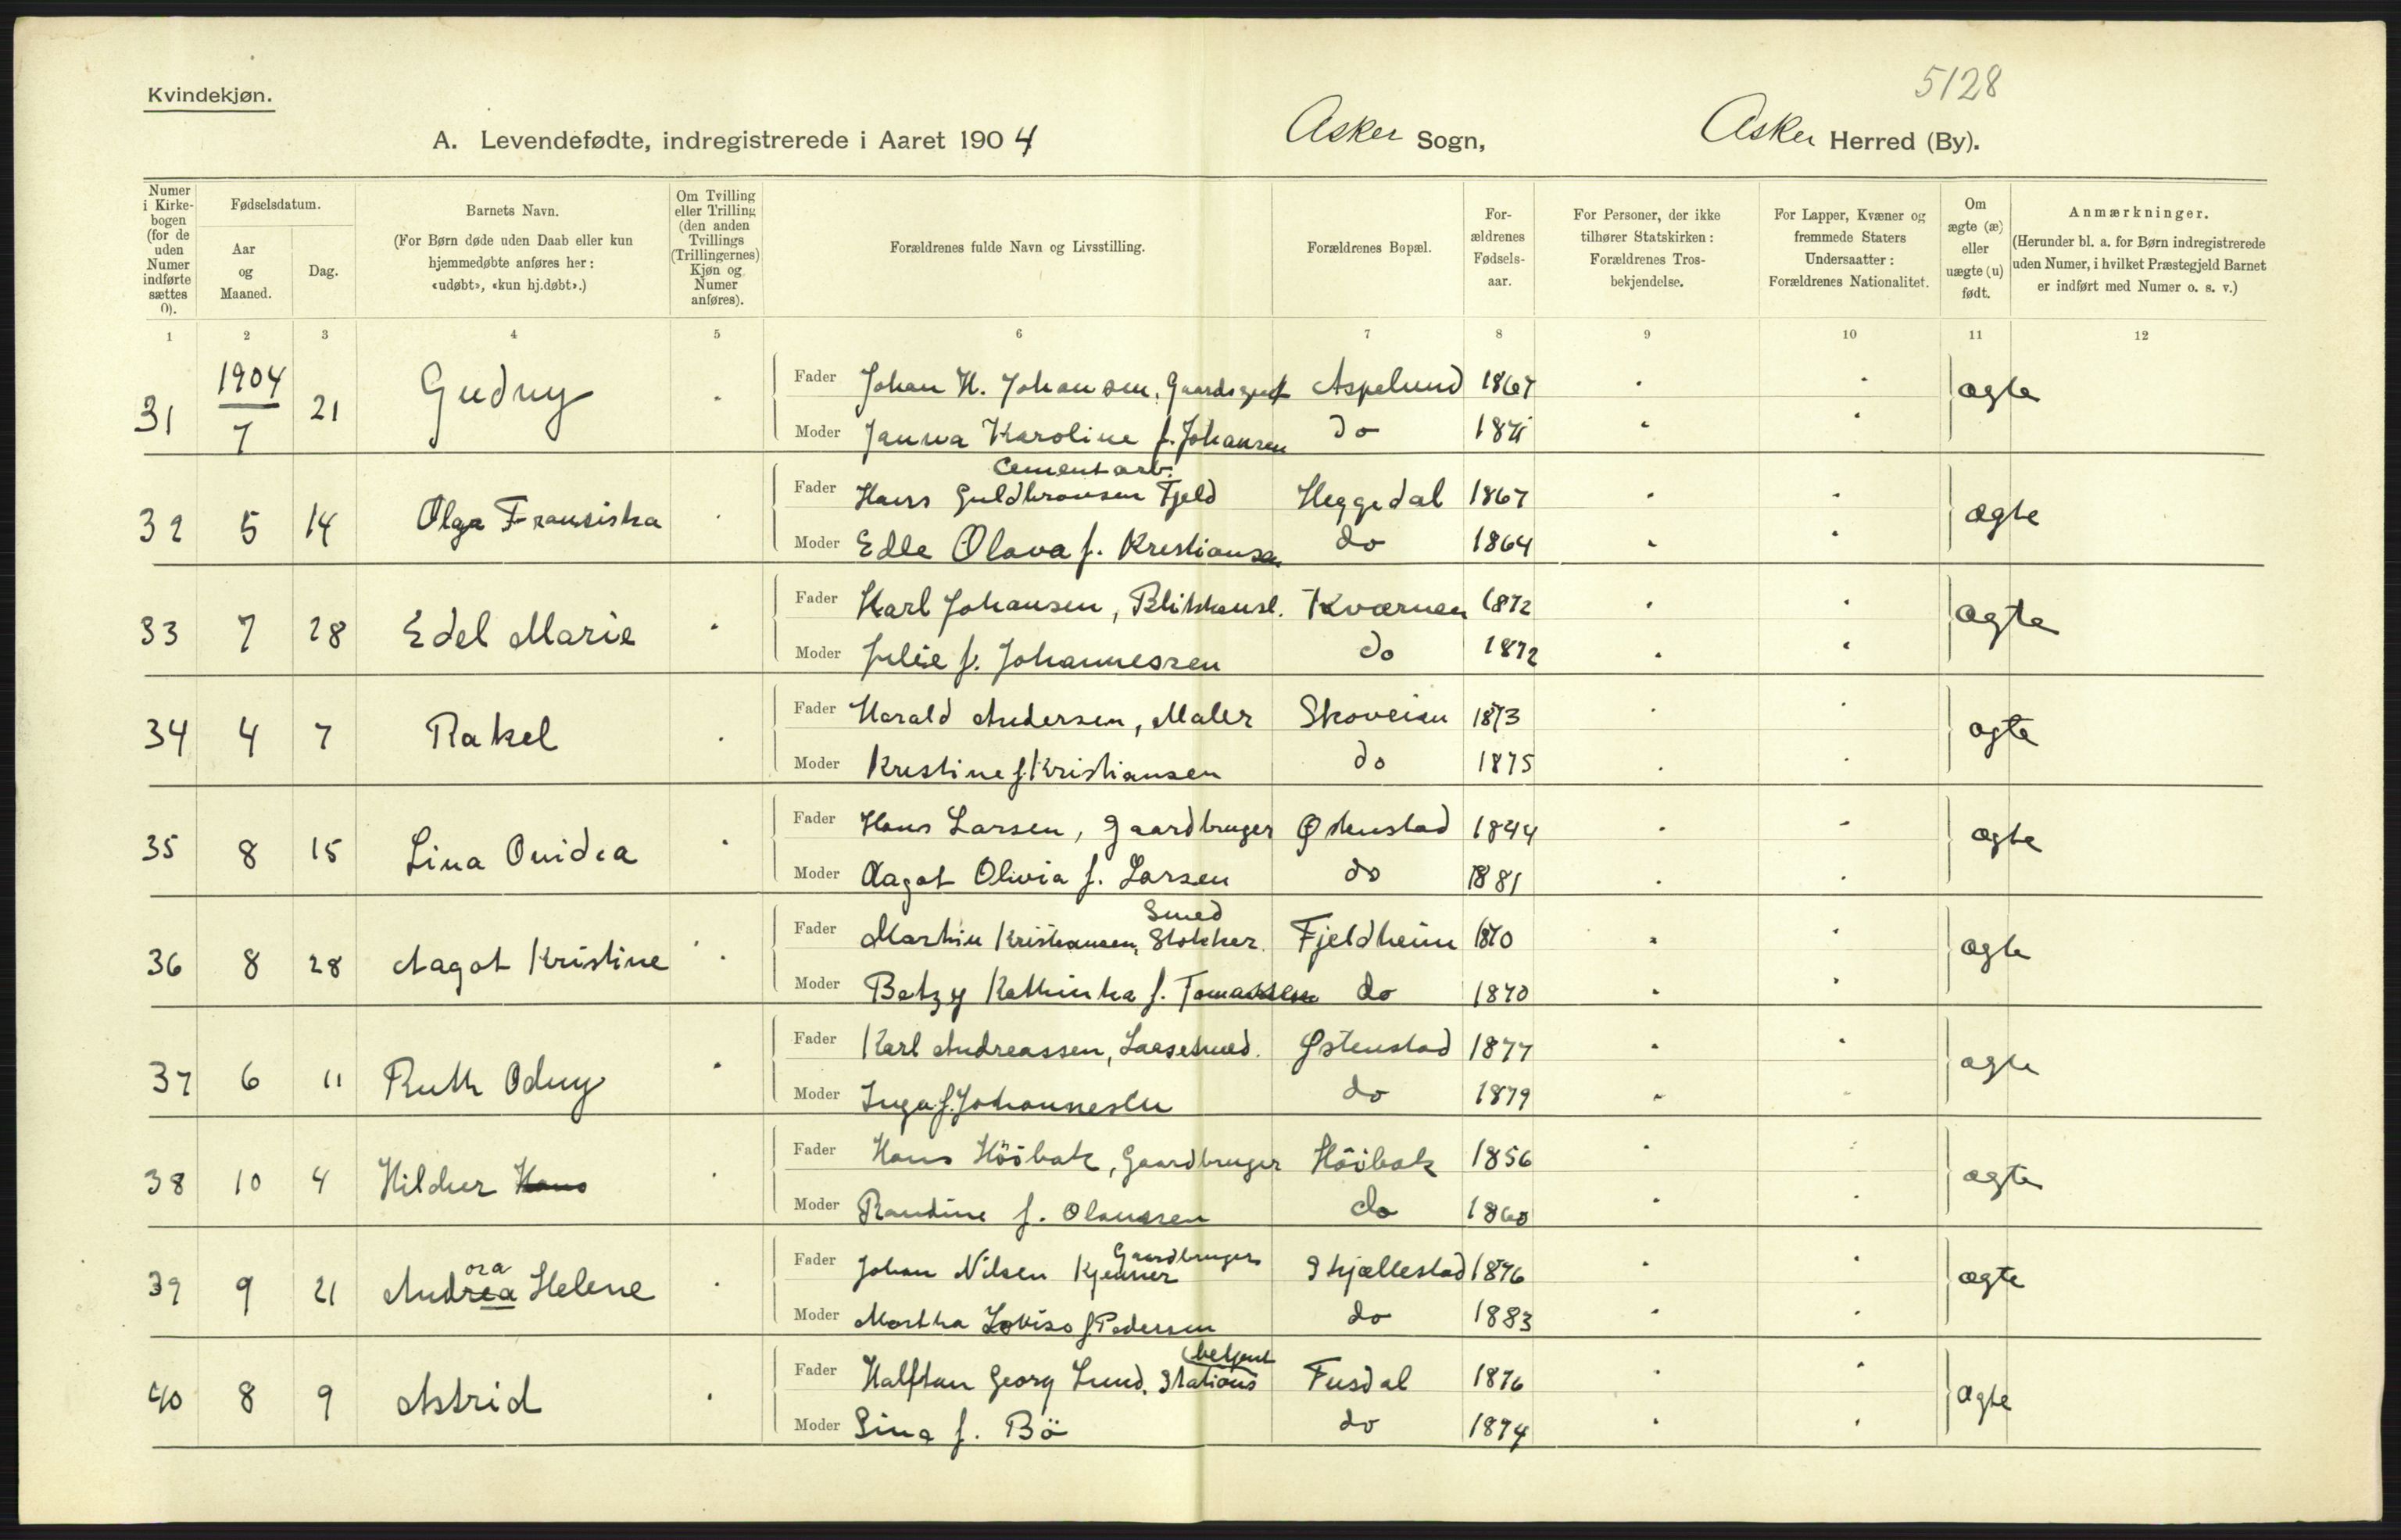 5128
Kvindekjøn.
A. Levendefødte, indregistrerede i Aaret 1904 Asker Sogn, Asker Herred (By).
Numer i Kirkebogen (for de uden Numer indførte sættes 0). Fødselsdatum. Aar og Maaned. Dag. Barnets Navn. (For Børn døde uden Daab eller kun hjemmedøbte anføres her: «udøbt», «kun hj.døbt».) Om Tvilling eller Trilling (den anden Tvillings (Trillingernes) Kjøn og Numer anføres). Forældrenes fulde Navn og Livsstilling. Forældrenes Bopæl. Forældrenes Fødselsaar. For Personer, der ikke tilhører Statskirken: Forældrenes Trosbekjendelse. For Lapper, Kvæner og fremmede Staters Undersaatter: Forældrenes Nationalitet. Om ægte (æ) eller uægte (u) født. Anmærkninger. (Herunder bl. a. for Børn indregistrerede uden Numer, i hvilket Præstegjeld Barnet er indført med Numer o. s. v.)
1 2 3 4 5 6 7 8 9 10 11 12
31 1904 7 21 Gudny Fader Johan H. Johansen, Aspelund 1867 ægte
Moder Janna Karoline f. Johansen do
Cementarb.
32 5 14 Olga Fransiska Fader Hans Guldbransen Fjeld Heggedal 1867 ægte
Moder Edle Olava f. Kristiansen do 1864
33 7 28 Edel Marie Fader Karl Johansen, Blikkensl. Kværnen 1872 ægte
Moder Julie f. Johannessen do 1872
34 4 7 Rakel Fader Harald Andersen, Maler Skoveien 1873 ægte
Moder Kristine f. Kristiansen do 1875
35 8 15 Lina Ovidia Fader Hans Larsen, Gaardbruger Østenstad 1844 ægte
Moder Aagot Olivia f. Larsen do 1881
Smed
36 8 28 Aagot Kristine Fader Martin Kristiansen, Stokker. Fjeldheim 1870 ægte
Moder Betzy Kathinka f. Tomassen do 1870
37 6 11 Ruth Odny Fader Karl Andreassen, Laasesmed. Østenstad 1877 ægte
Moder Inga f. Johannesen do 1879
38 10 4 Hildur Hans Fader Hans Höibak, Gaardbruger Höibak 1856 ægte
Moder Randine f. Olaussen do 1860
ora Gaardbruger
39 9 21 Andrea Helene Fader Johan Nilsen Kjenner Skjællestad 1876 ægte
Moder Martha Lovise f. Pedersen do 1883
betjent
40 8 9 Astrid Fader Halfdan Georg Lund, Stations Fusdal 1876 ægte
Moder Sina f. Bö do 1874